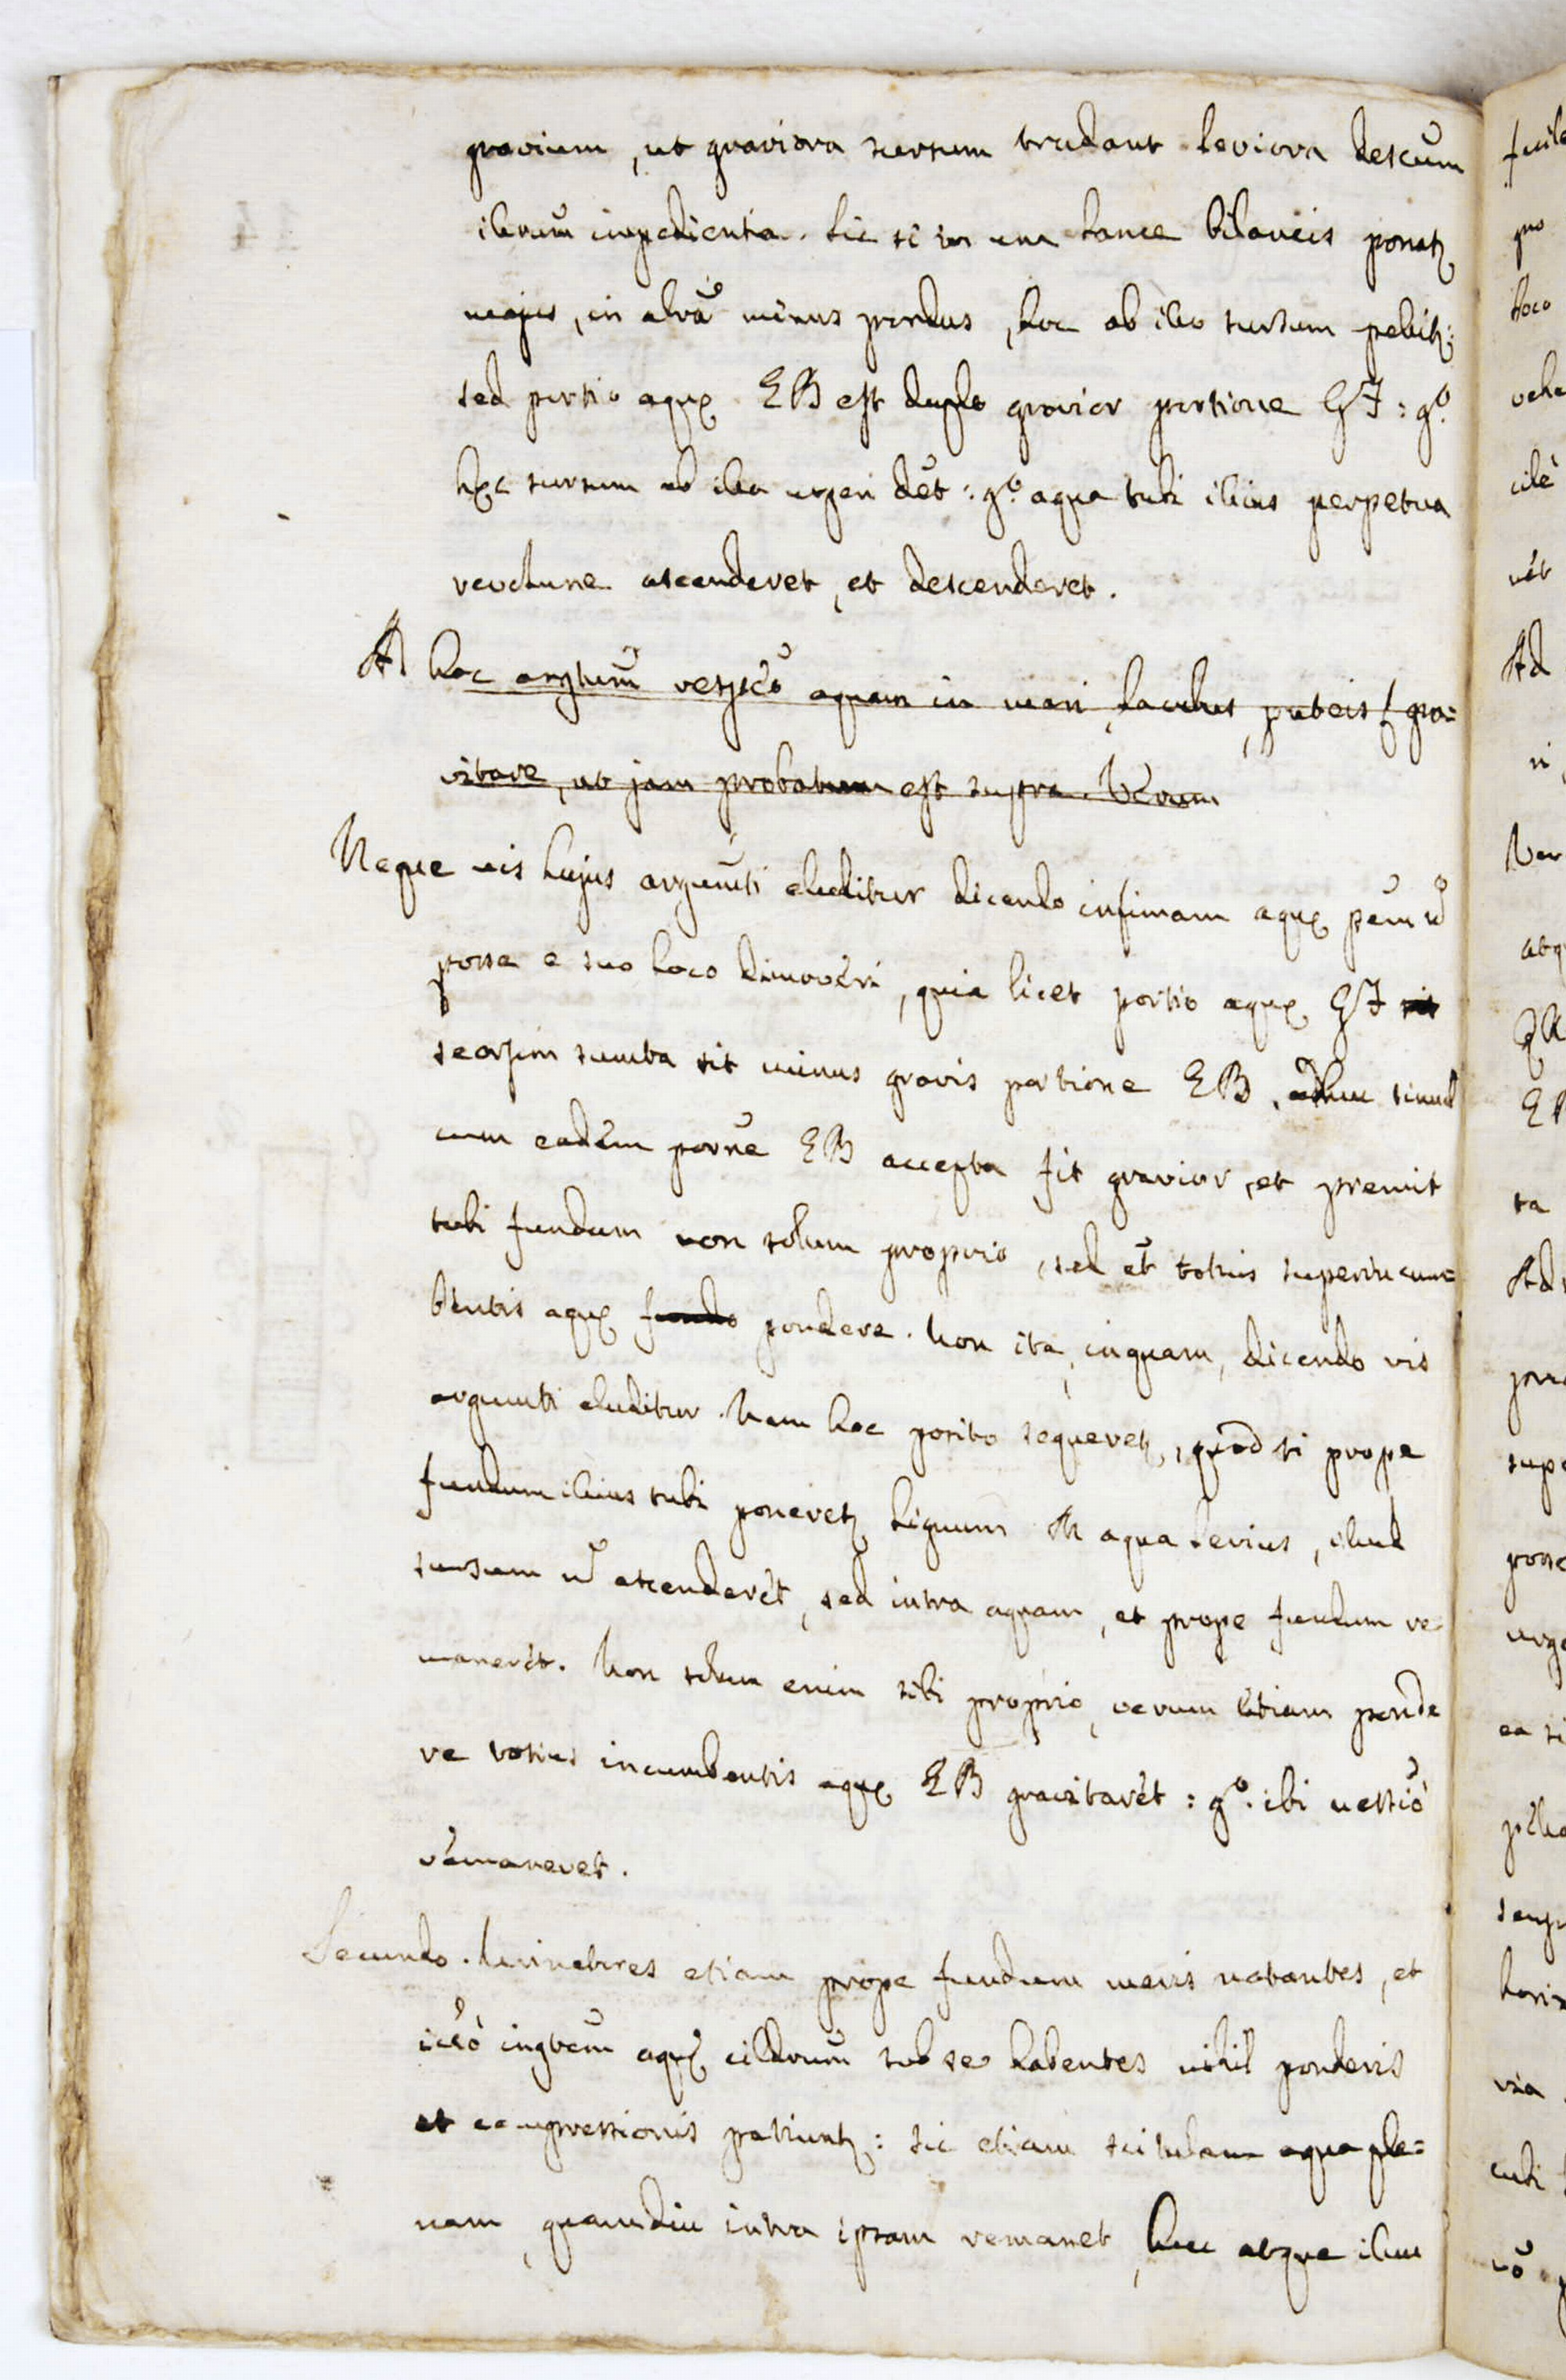 gravium, ut graviora sursum trudant leviora descēum
illorum̄ impedientia. Sic si in una lance bilancis ponat[ur]
majus, in altrā minus pondus, hoc ab illo sursum pellit[ur]:
sed portio aquę EB est duplo gravior portione GF: gº.
hęc sursum ab illa urgeri dēt: gº. aqua tubi illius perpetuo
ascenderet, et descenderet.
Ad hoc argtum̄ respdeō aquam in mari, lacubus, puteis gra=
vitare, ut jam probatum est supra. Verum
Neque vis hujus argumt̄i eluditur dicendo infimam aquę pēm nō
posse e suo loco dimoveri, quia licet portio aquę GF sit
seorsim sumta sit minus gravis portione EB, adhuc simul
cum eadem porne EB accepta fit gravior, et premit
tubi fundum non solum proprio, sed et̄ totius superincum=
bentis aquę fundo pondere. Non ita, inquam, dicendo vis
argumti eluditur. Nam hoc posito sequeret[ur], quod si prope
fundum illius tubi poneret[ur] lignum M aqua levius, illud
sursum nō ascenderet, sed intra aquam, et prope fundum re
maneret. Non solum enim sibi proprio, verum etiam ponde
re totius incumbentis aquę EB gravitaret: gº. ibi
remaneret.
Secundo. Urinatores etiam prope fundum maris natantes, et
ictō ingtem̄ aquę cildrum̄ sub se habentes nihil ponderis
et compressionis patiunt[ur]: sic etiam situlam aqua ple=
nam, quamdiu intra ipsam remanet, huc atque illuc